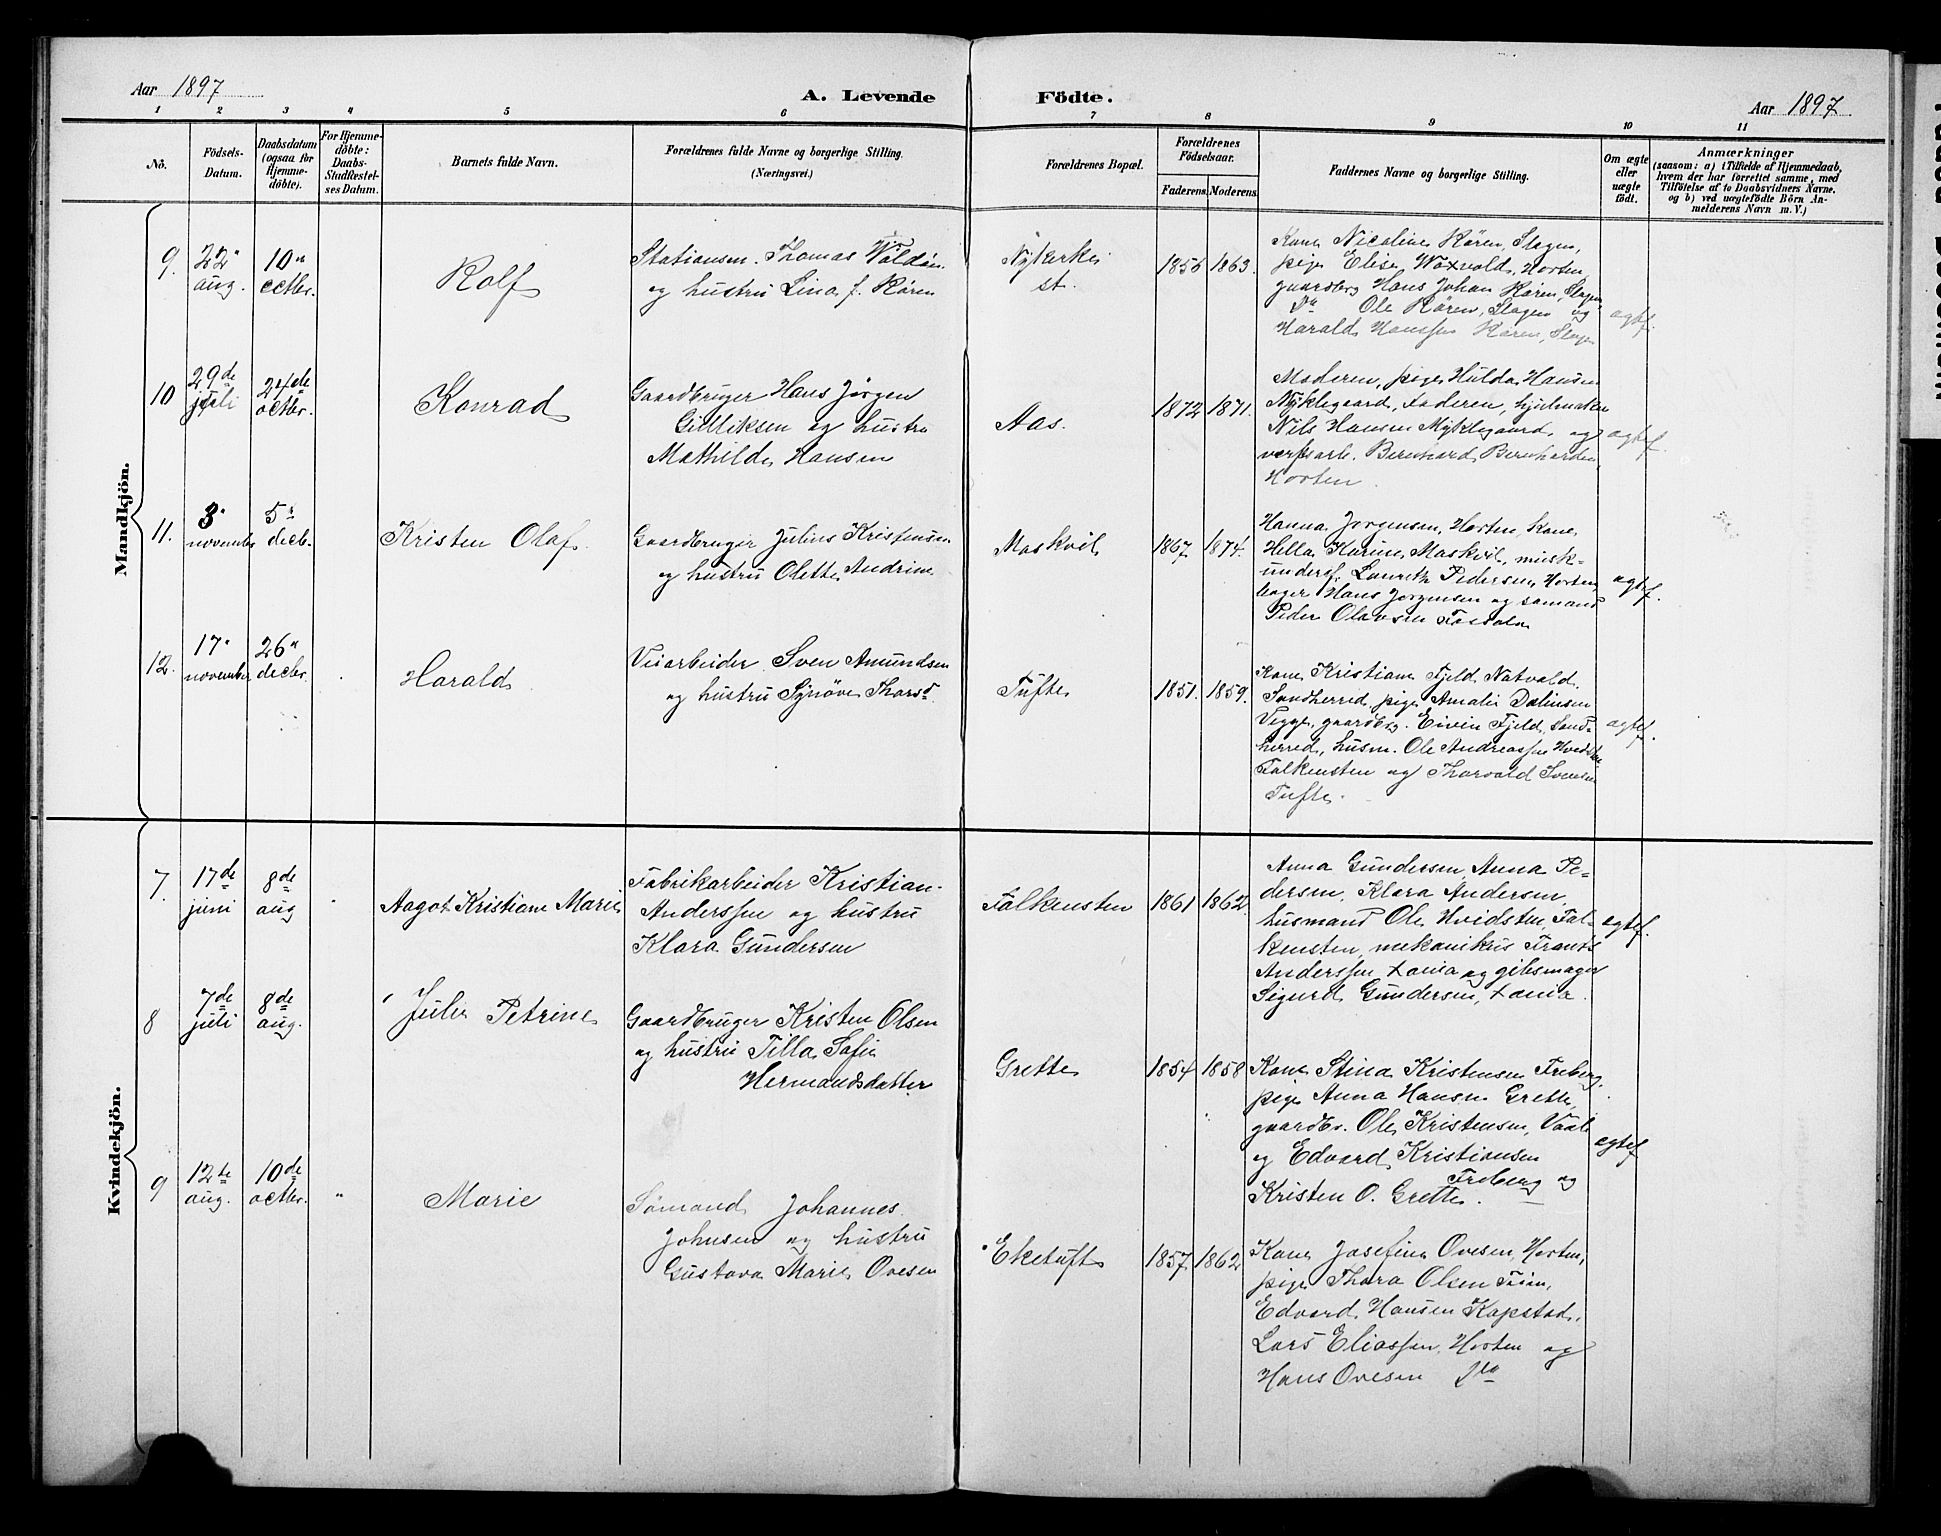 Aar 1897
A. Levende Födte.
Aar 1897
1 2 3 4 5 6 7 8 9 10 11
Nö.
Födsels-Datum.
Daabsdatum (ogsaa for Hjemmedöbte).
For Hjemmedöbte: Daabs-Stadfestelses Datum.
Barnets fulde Navn.
Forældrenes fulde Navne og borgerlige Stilling. (Næringsvei.)
Forældrenes Bopæl.
Forældrenes Födselsaar.
Faderens. Moderens.
Faddernes Navne og borgerlige Stilling.
Om ægte eller uægte födt.
Anmærkninger
(saasom: a) i Tilfælde af Hjemmedaab,
hvem der har forrettet samme, med
Tilföielse af to Daabsvidners Navne,
og b) ved uægtefödte Börn An-
melderens Navn m. V.)
Mandkjön.
9. 22" aug. 10" octbr.
Rolf
Stationsm. Thomas
og hustru Lina f. Røren
Nykirke st.
1856 1863.
Kone Nicoline Røren, Slagen,
pige Elise Woxvold, Horten,
gaardbrg Hans Johan Røren, Slagen,
Do Ole Røren, Slagen og
Harald Hanssen Røren, Slagen
ægtef.
10 29de juli 24de octbr.
Konrad
Gaardbruger Hans Jørgen
Gulliksen og hustru
Mathilde Hansen
Aas.
1872 1871.
Moderen, pige Hulda Hansen
Myklegaard, Faderen, hjulmaker
Nils Hansen Myklegaard og
verftsarb. Bernhard Bernhardsen
Horten.
ægtef.
11. 3" november 5" decb.
Kristen Olaf.
Gaardbruger Julius Kristensen
og hustru Olette Andrine
Maskvil
1867 1874.
Hanna Jørgensen, Horten, Kone
Hella Karine Maskvil, minsk-
undersf. Laurits Pedersen, Horten,
bager Hans Jørgensen og sømand
Peder Olavsen
ægtef.
12. 17" november 26" decbr.
Harald
Veiarbeider Sven Amundsen
og hustru Synøve Thorsd.
Tufte
1851. 1859.
Kone Kristiane Fjeld Natvald.
Sandherred, pige Amalie
Vegge, gaardbrg. Eivin Fjeld, Sand-
herred, husm. Ole Andreassen Hvidsten
Falkensten og Thorvald Svensen
Tufte.
ægtef.
Kvindekjön.
7. 17de juni 8de aug "
Aagot Kristiane Marie
Fabrikarbeider Kristian
Anderssen og hustru
Klara Gundersen
Falkensten
1861 1862.
Anna Gundersen, Anna Pe-
dersen, Klara Andersen,
husmand Ole Hvidsten, Fal-
kensten, mekanikus Frants
Anderssen, Xania og gibsmager
Sigurd Gundersen, Xania.
ægtef.
8 7de juli 8de aug.
Julie Petrine
Gaardbruger Kristen Olsen
og hustru Tilla Sofie
Hermandsdatter
Grette
1854 1858
Kone Stina Kristensen Freberg.
pige Anna Hansen Grette,
gaardbr. Ole Kristensen, Vaale
og Edvard Kristiansen
Freberg og
Kristen O. Grette.
ægtef
9 12te aug. 10de octbr. "
Marie
Sømand Johannes
Johnsen og hustru
Gustava Marie Ovesen
Eketuft
1857. 1862
Kone Josefine Ovesen, Horten,
pige Thora Olsen
Edvard Hansen Kapstad,
Lars Eliassen, Horten og
Hans Ovesen Do